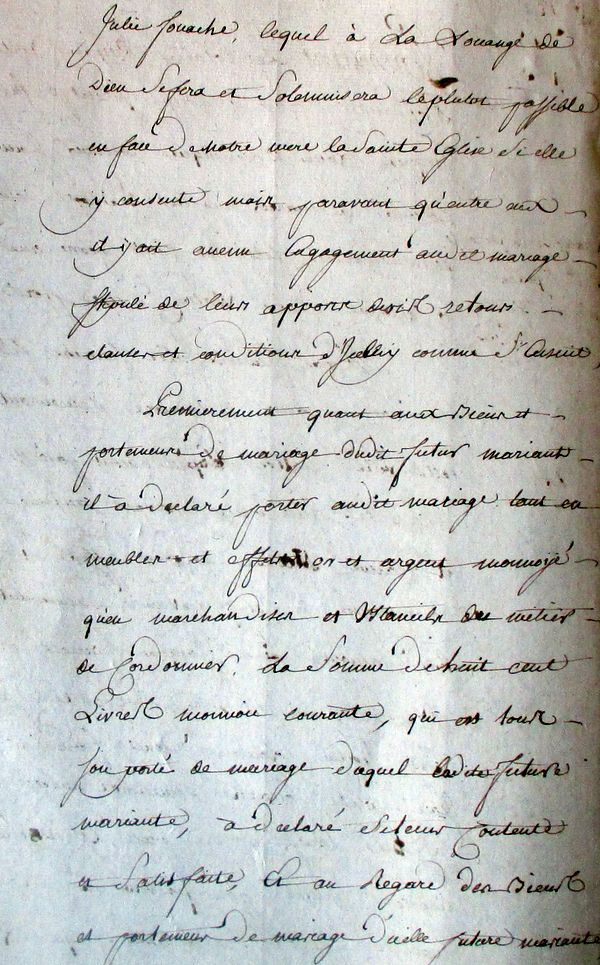 Julie Jouache, lequel à La Louange de
Dieu Sefera et Solemnisera leplutot possible
en face de notre mere la Sainte Eglise Si elle
y consente mais paravant qu'entre eux
il y ait aucun Engagement audit mariage
Stipulé de leurs apports droits retours
clauses et conditions d'Icelluy comme S'Ensuit,
Premierement quant aux Biens et
portement de mariage dudit futur mariant
il a declaré porter audit mariage tant en
meubles et effets or et argent monnoyé
qu'en marchandises et Ustancils du metier
de Cordonnier, La Somme de huit cent
Livres monnoie courante, qui est tout
son porté de mariage duquel Ladite future
mariante, a declaré Se tenir Contente
et Satisfaite, Et au Regard des Biens
et portement de mariage d'icelle future mariante